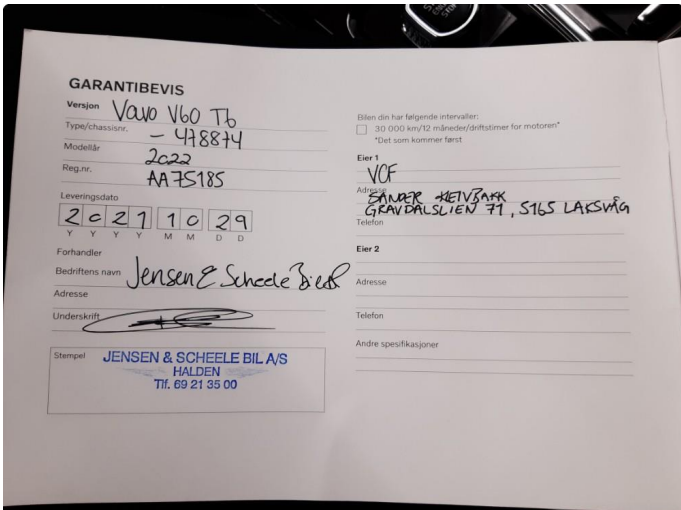 GARANTIBEVIS
Versjon Volvo V60 T6
Type/chassisnr. - 478874
Modellår 2022
Reg.nr. AA75185
Leveringsdato
2021 10 29
Y Y Y Y M M D D
Forhandler
Bedriftens navn Jensen & Scheele Bil
Adresse
Underskrift
Stempel JENSEN & SCHEELE BIL A/S
HALDEN
Tlf. 69 21 35 00
Bilen din har følgende intervaller:
30 000 km/12 måneder/driftstimer for motoren*
*Det som kommer først
Eier 1
VCF
Adresse SANDER
GRAVDALSLIEN 71, 5165 LAKSVÅG
Telefon
Eier 2
Adresse
Telefon
Andre spesifikasjoner